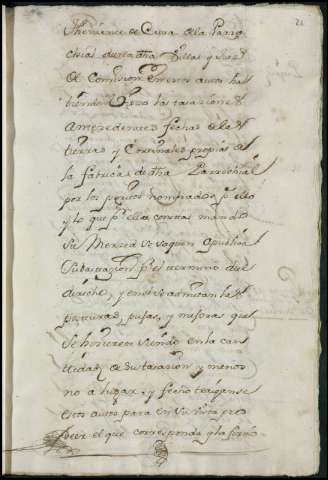 Theniente de Cura de la Parro
chial de esta dha Villa y Juez
de Comision en estos autos ha
biendo visto las tasaciones
antezedentes fechas de las
tierras y Corrales propias de
la fabrica de dha Parrochial
por los peritos nombrados p.ª ello
y lo que p.r ella consta: mandó
su Merced se saquen a publica
Subastazion p.r el termino del
derecho, y en el se admitan las
posturas, pujas, y mejoras que
se hicieren siendo en la can
tidad de su tasazion y menos
no a lugar, y fecho traiganse
estos autos para en su vista pro
beer el que corresponda y lo firmó